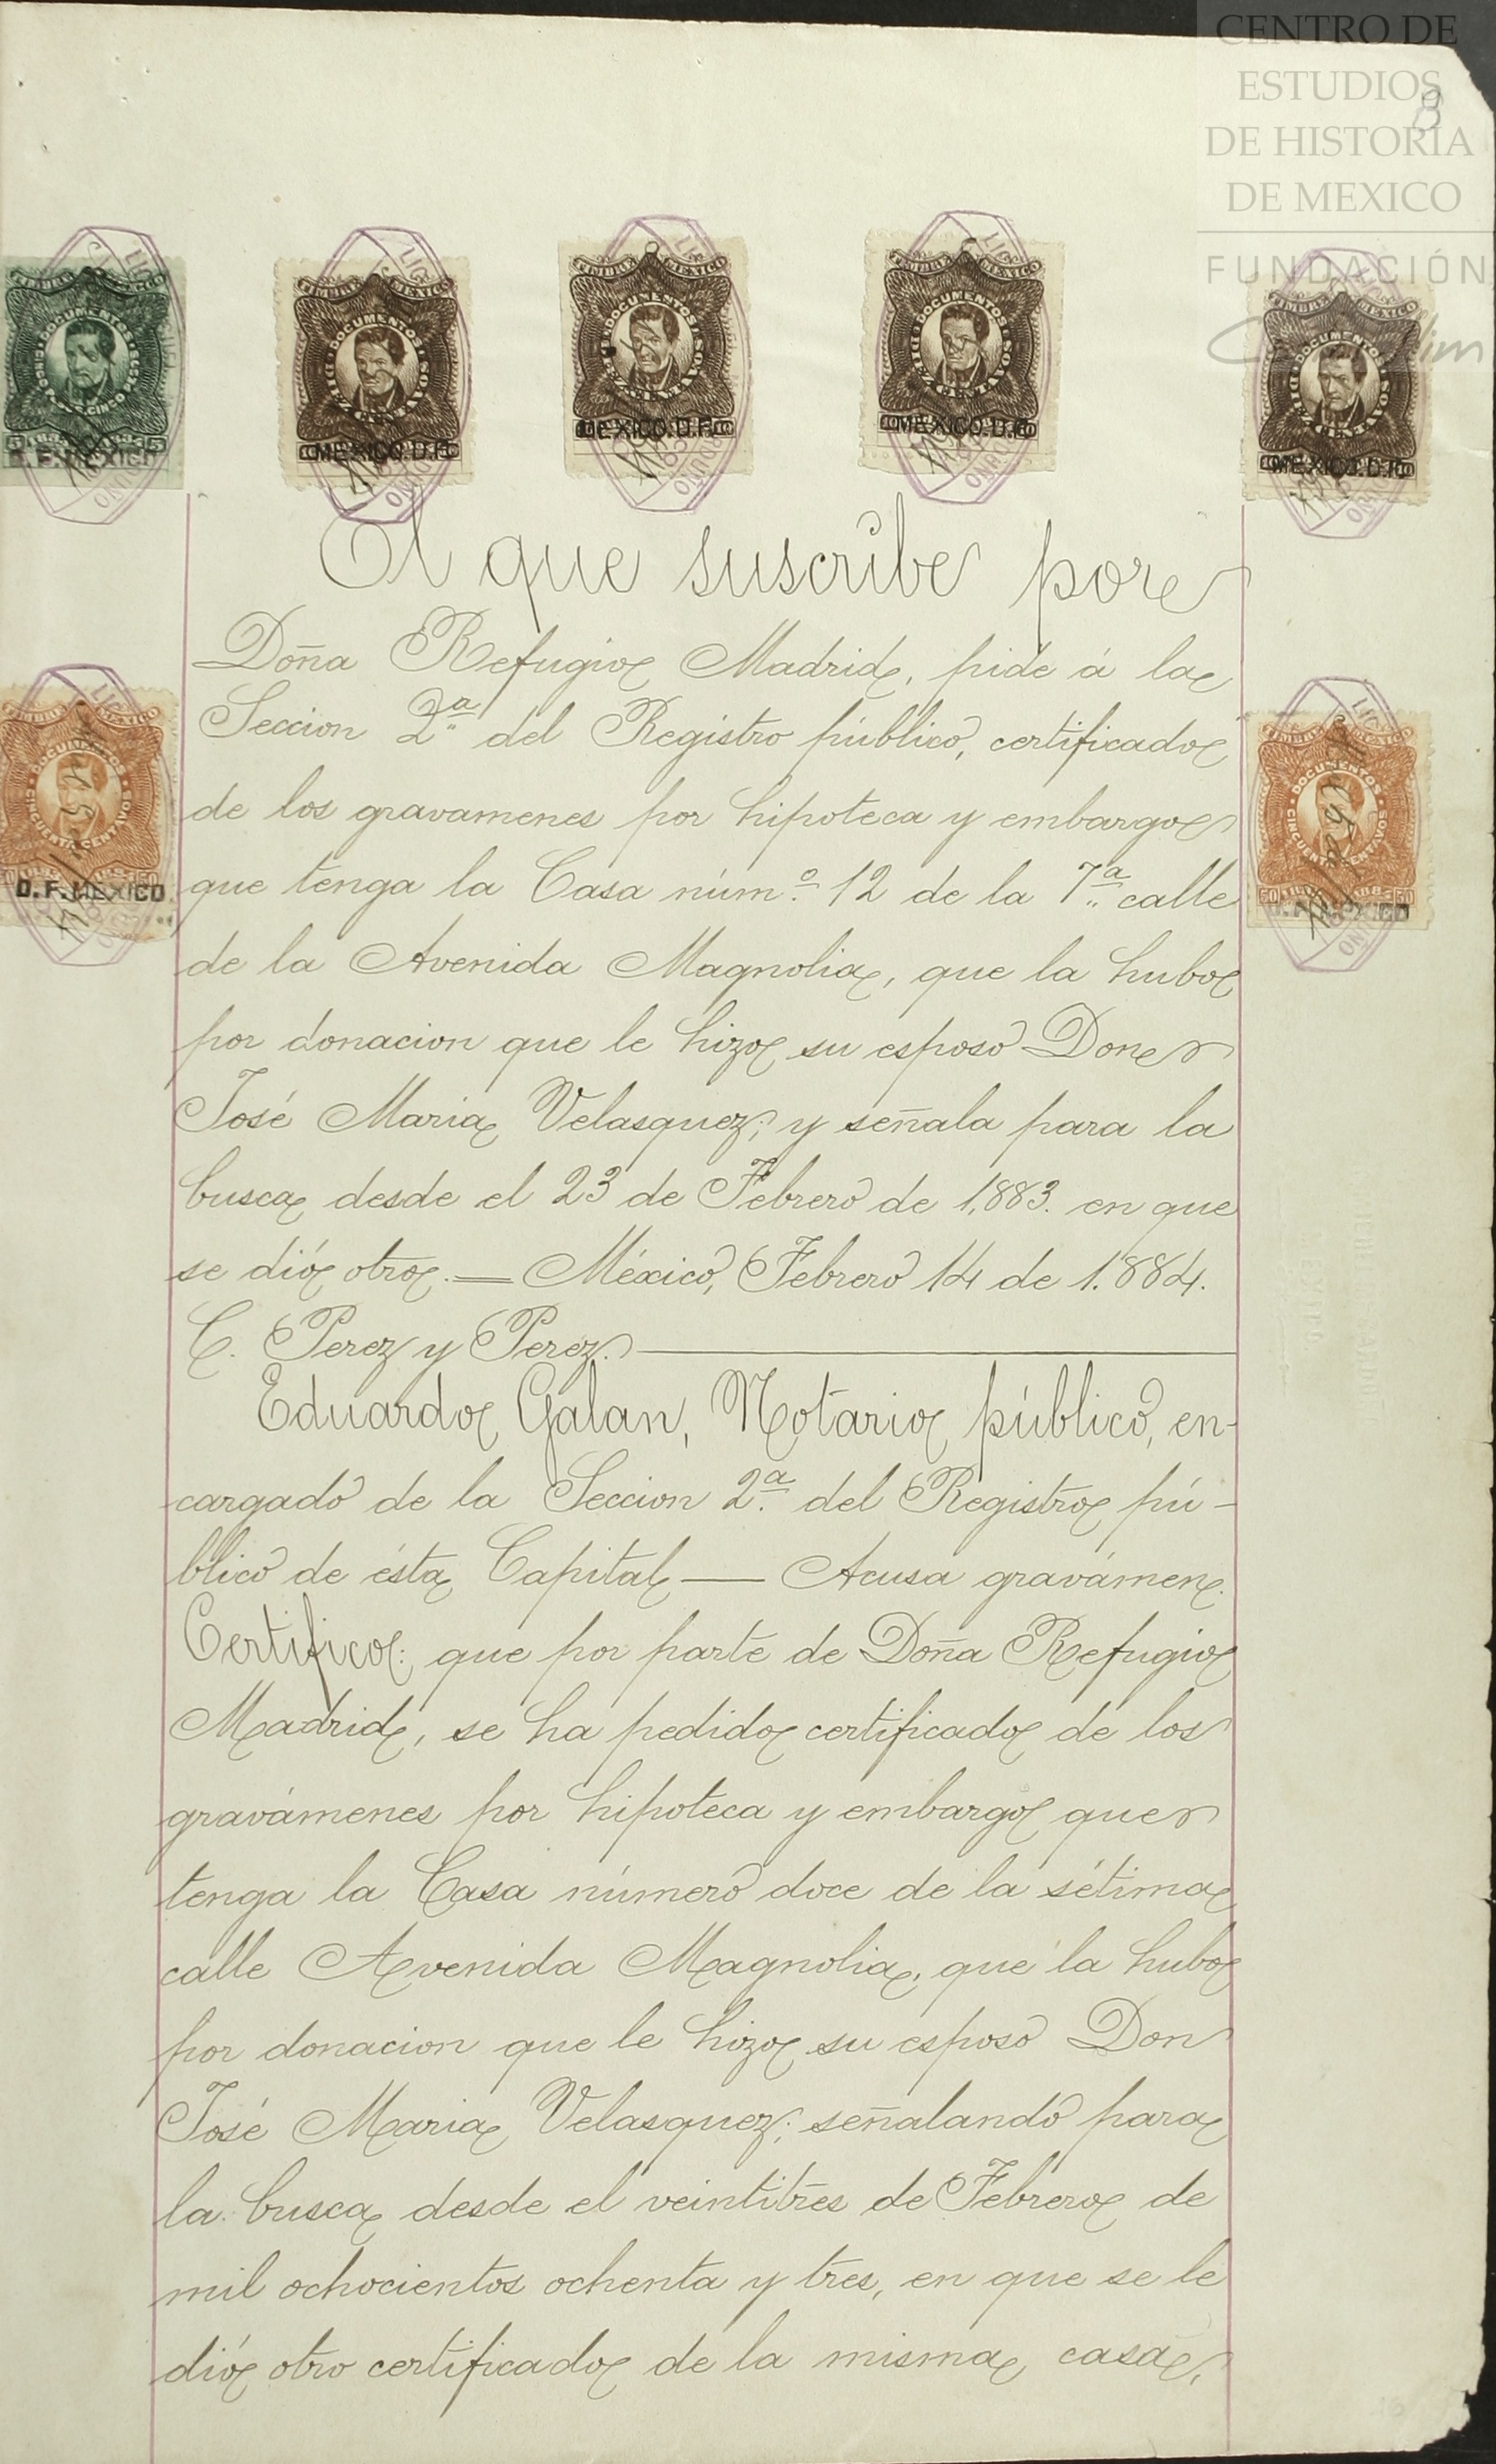 CENTRO DE
ESTUDIOS
DE HISTORIA
DE MEXICO
FUNDACIÓN
8
TIMBRE MEXICO
DOCUMENTOS
D. F. MEXICO
TIMBRE MEXICO
DOCUMENTOS
DIEZ CENTAVOS
MEXICO. D. F.
TIMBRE MEXICO
DOCUMENTOS
DIEZ CENTAVOS
MEXICO. D. F.
TIMBRE MEXICO
DOCUMENTOS
DIEZ CENTAVOS
MEXICO. D. F.
TIMBRE MEXICO
DOCUMENTOS
DIEZ CENTAVOS
MEXICO. D. F.
El que suscribe por
Doña Refugio Madrid, pide á la
Seccion 2ª del Registro público, certificado
de los gravamenes por hipoteca y embargo
que tenga la Casa núm.º 12 de la 7ª calle
de la Avenida Magnolia, que la hubo
por donacion que le hizo su esposo Don
José Maria Velasquez; y señala para la
busca desde el 23 de Febrero de 1,883. en que
se dió otro. — México, Febrero 14 de 1.884.
C. Perez y Perez.
TIMBRE MEXICO
DOCUMENTOS
CINCUENTA CENTAVOS
D. F. MEXICO
TIMBRE MEXICO
DOCUMENTOS
CINCUENTA CENTAVOS
50 50
D. F. MEXICO
Eduardo Galan, Notario público, en-
cargado de la Seccion 2ª del Registro pú-
blico de ésta Capital — Acusa gravámen.
Certifico: que por parte de Doña Refugio
Madrid, se ha pedido certificado de los
gravámenes por hipoteca y embargo que
tenga la Casa número doce de la sétima
calle Avenida Magnolia, que la hubo
por donacion que le hizo su esposo Don
José Maria Velasquez; señalando para
la busca desde el veintitres de Febrero de
mil ochocientos ochenta y tres, en que se le
dió otro certificado de la misma casa,